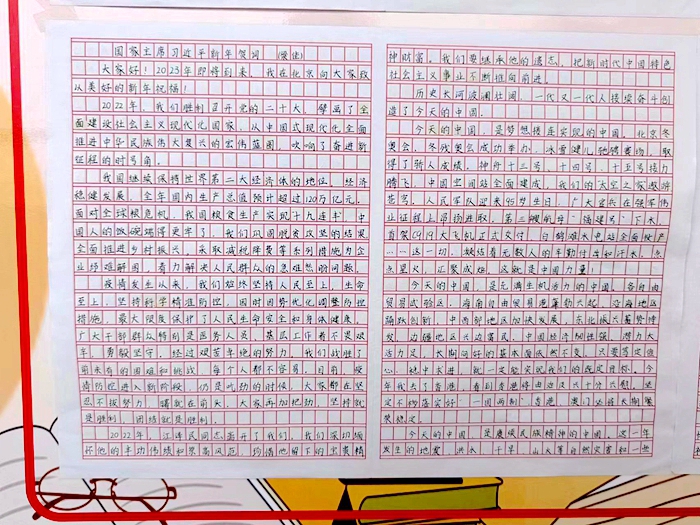 国家主席习近平新年贺词 (节选)
大家好！2023年即将到来，我在北京向大家致
以美好的新年祝福！
2022年，我们胜利召开党的二十大，擘画了全
面建设社会主义现代化国家、以中国式现代化全面
推进中华民族伟大复兴的宏伟蓝图，吹响了奋进新
征程的时代号角。
我国继续保持世界第二大经济体的地位，经济
稳健发展，全年国内生产总值预计超过120万亿元。
面对全球粮食危机，我国粮食生产实现"十九连丰"，中
国人的饭碗端得更牢了。我们巩固脱贫攻坚的结果，
全面推进乡村振兴，采取减税降费等系列措施为企
业纾难解困，着力解决人民群众的急难愁盼问题。
疫情发生以来，我们始终坚持人民至上、生命
至上，坚持科学精准防控，因时因势优化调整防控
措施，最大限度保护了人民生命安全和身体健康。
广大干部群众特别是医务人员、基层工作者不畏艰
辛、勇毅坚守，经过艰苦卓绝的努力，我们战胜了
前所未有的困难和挑战，每个人都不容易。目前，疫
情防控进入新阶段，仍是吃劲的时候，大家都在坚
忍不拔努力，曙光就在前头。大家再加把劲，坚持就
是胜利，团结就是胜利。
2022年，江泽民同志离开了我们。我们深切缅
怀他的丰功伟绩和崇高风范，珍惜他留下的宝贵精
神财富。我们要继承他的遗志，把新时代中国特色
社会主义事业不断推向前进。
历史长河波澜壮阔，一代又一代人接续奋斗创
造了今天的中国。
今天的中国，是梦想接连实现的中国。北京冬
奥会、冬残奥会成功举办，冰雪健儿驰骋赛场，取
得了骄人成绩。神舟十三号、十四号、十五号接力
腾飞，中国空间站全面建成，我们的"太空之家"遨游
苍穹。人民军队迎来95岁生日，广大官兵在强军伟
业征程上昂扬奋进。第三艘航母"福建号"下水，
首架C919大飞机正式交付，白鹤滩水电站全面投产
……这一切，凝结着无数人的辛勤付出和汗水。点
点星火，汇聚成炬，这就是中国力量！
今天的中国，是充满生机活力的中国。各自由
贸易试验区、海南自由贸易港蓬勃兴起，沿海地区
踊跃创新，中西部地区加快发展，东北振兴蓄势待
发，边疆地区兴边富民。中国经济韧性强、潜力大、
活力足，长期向好的基本面依然不变。只要笃定信
心、稳中求进，就一定能实现我们的既定目标。今
年我去了香港，看到香港将由治及兴十分欣慰。坚
定不移落实好"一国两制"，香港、澳门必将长期繁
荣稳定。
今天的中国，是赓续民族精神的中国。这一年
发生的地震、洪水、干旱、山火等自然灾害和一些